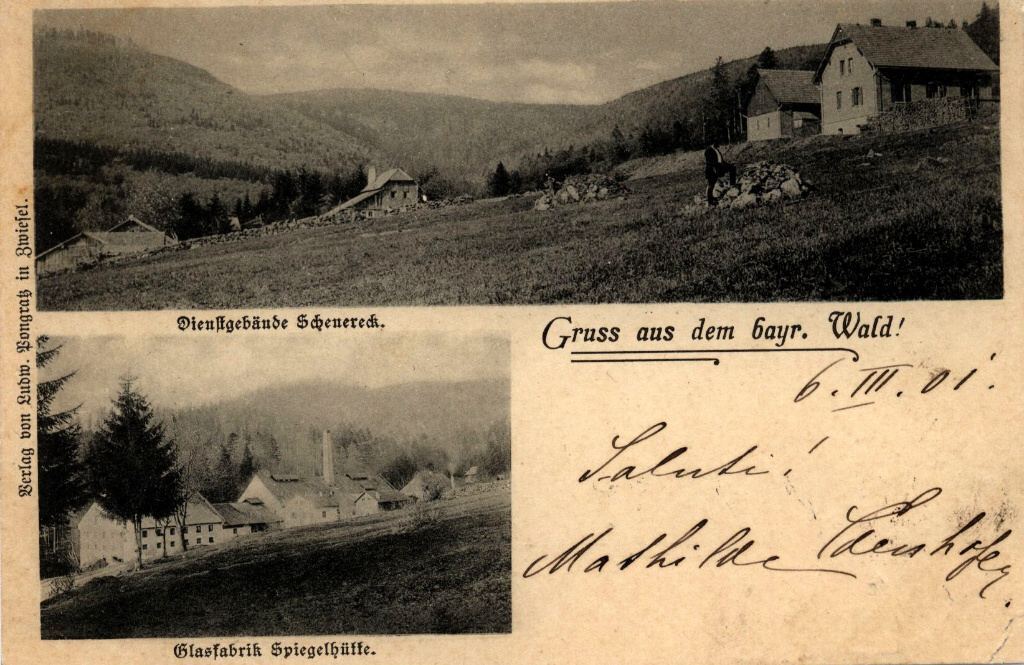 Verlag von Ludw. Pongratz in Zwiesel.
Dienstgebände Schenereck.
Gruss aus dem bayr. Wald!
6. III. 01.
Saluti!
Mathilde
Glasfabrik Spiegelhütte.